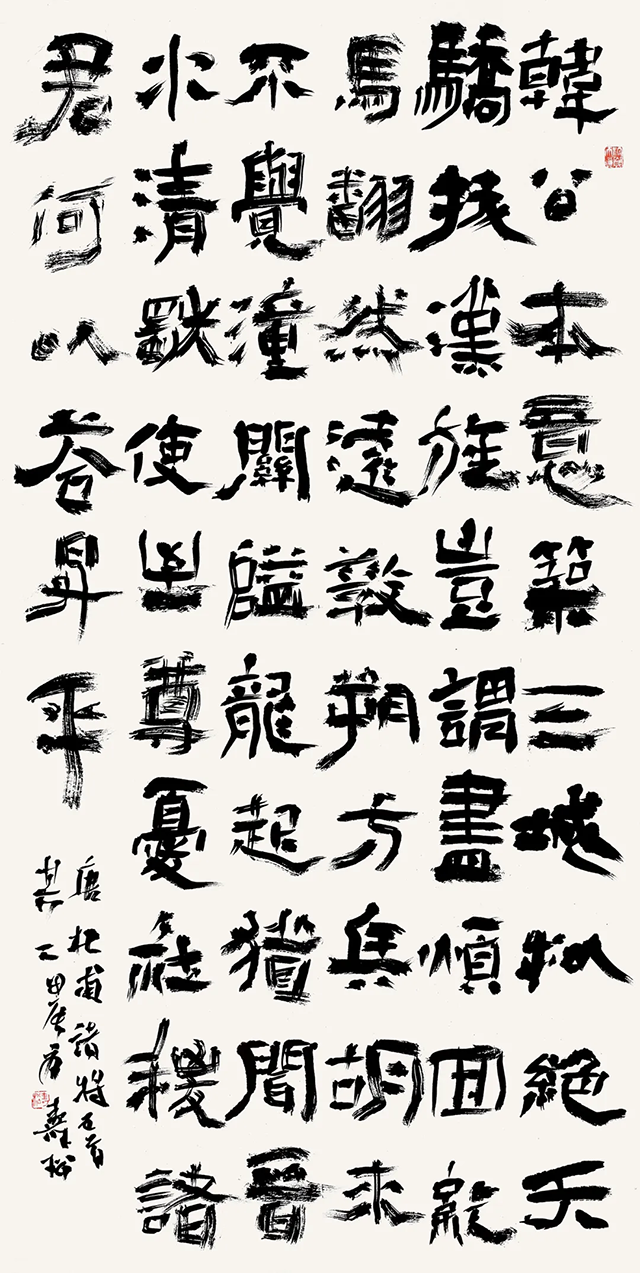 韓公本意築三城擬絕天
驕拔漢旌豈謂盡煩囬紇
馬翻然遠救朔方兵胡來
不覺潼關隘龍起猶聞晉
水清獨使至尊憂社稷諸
君何以荅昇平
唐杜甫諸將五首
其二